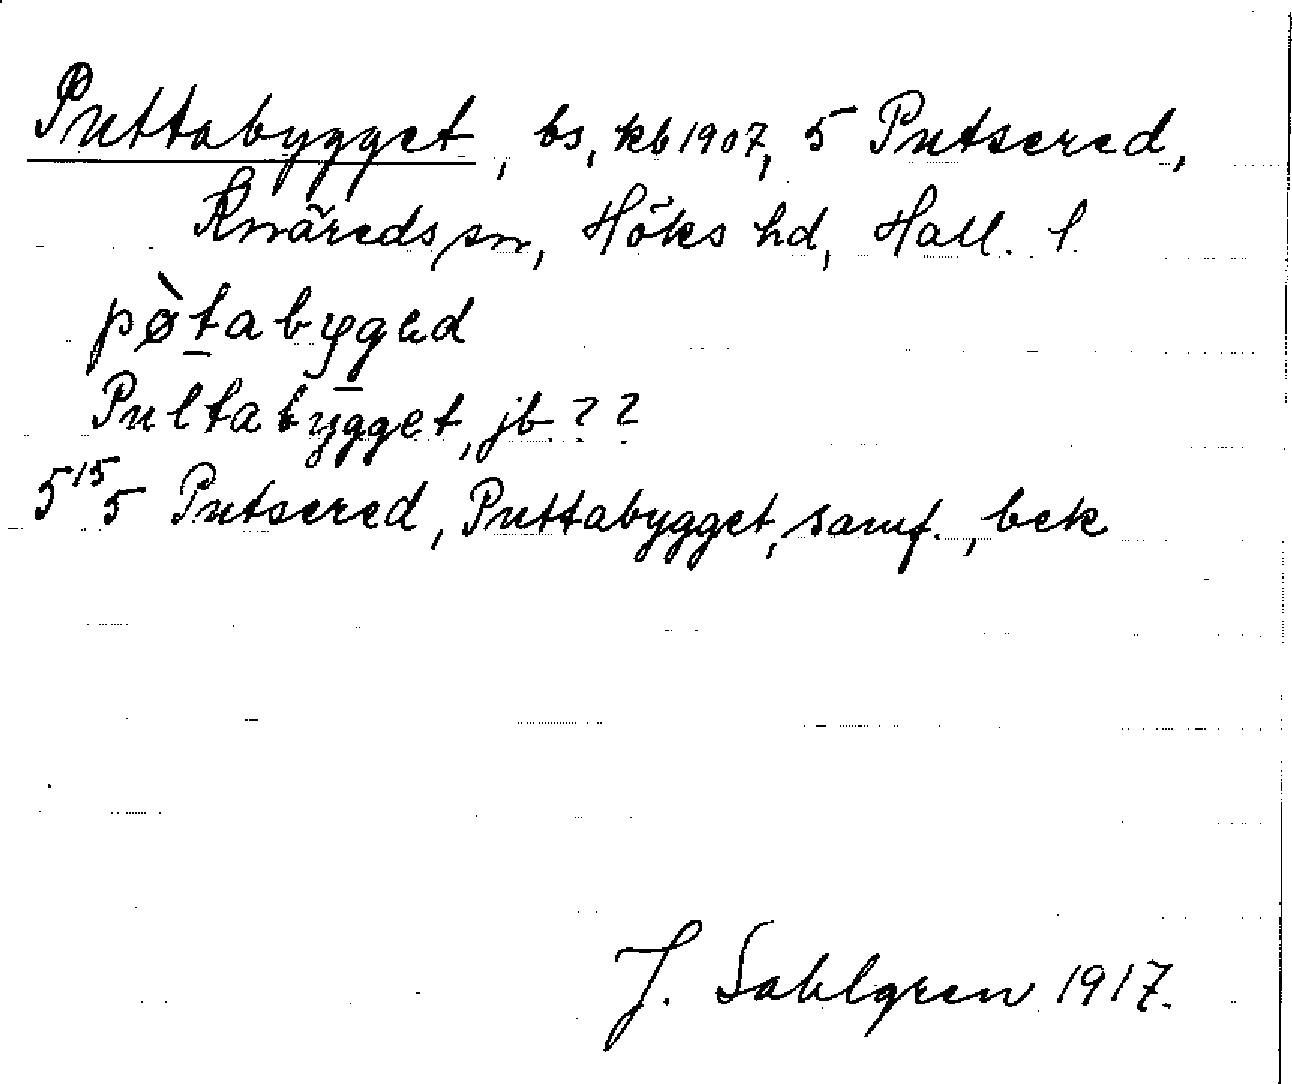 Puttabygget, bs, kb 1907, 5 Putsered,
Knäreds sn, Höks hd, Hall. l.
pø̀tabygəd
Pultabygget, jb ??
5¹⁵ 5 Putsered, Puttabygget, samf., bek
J. Sahlgren 1917.